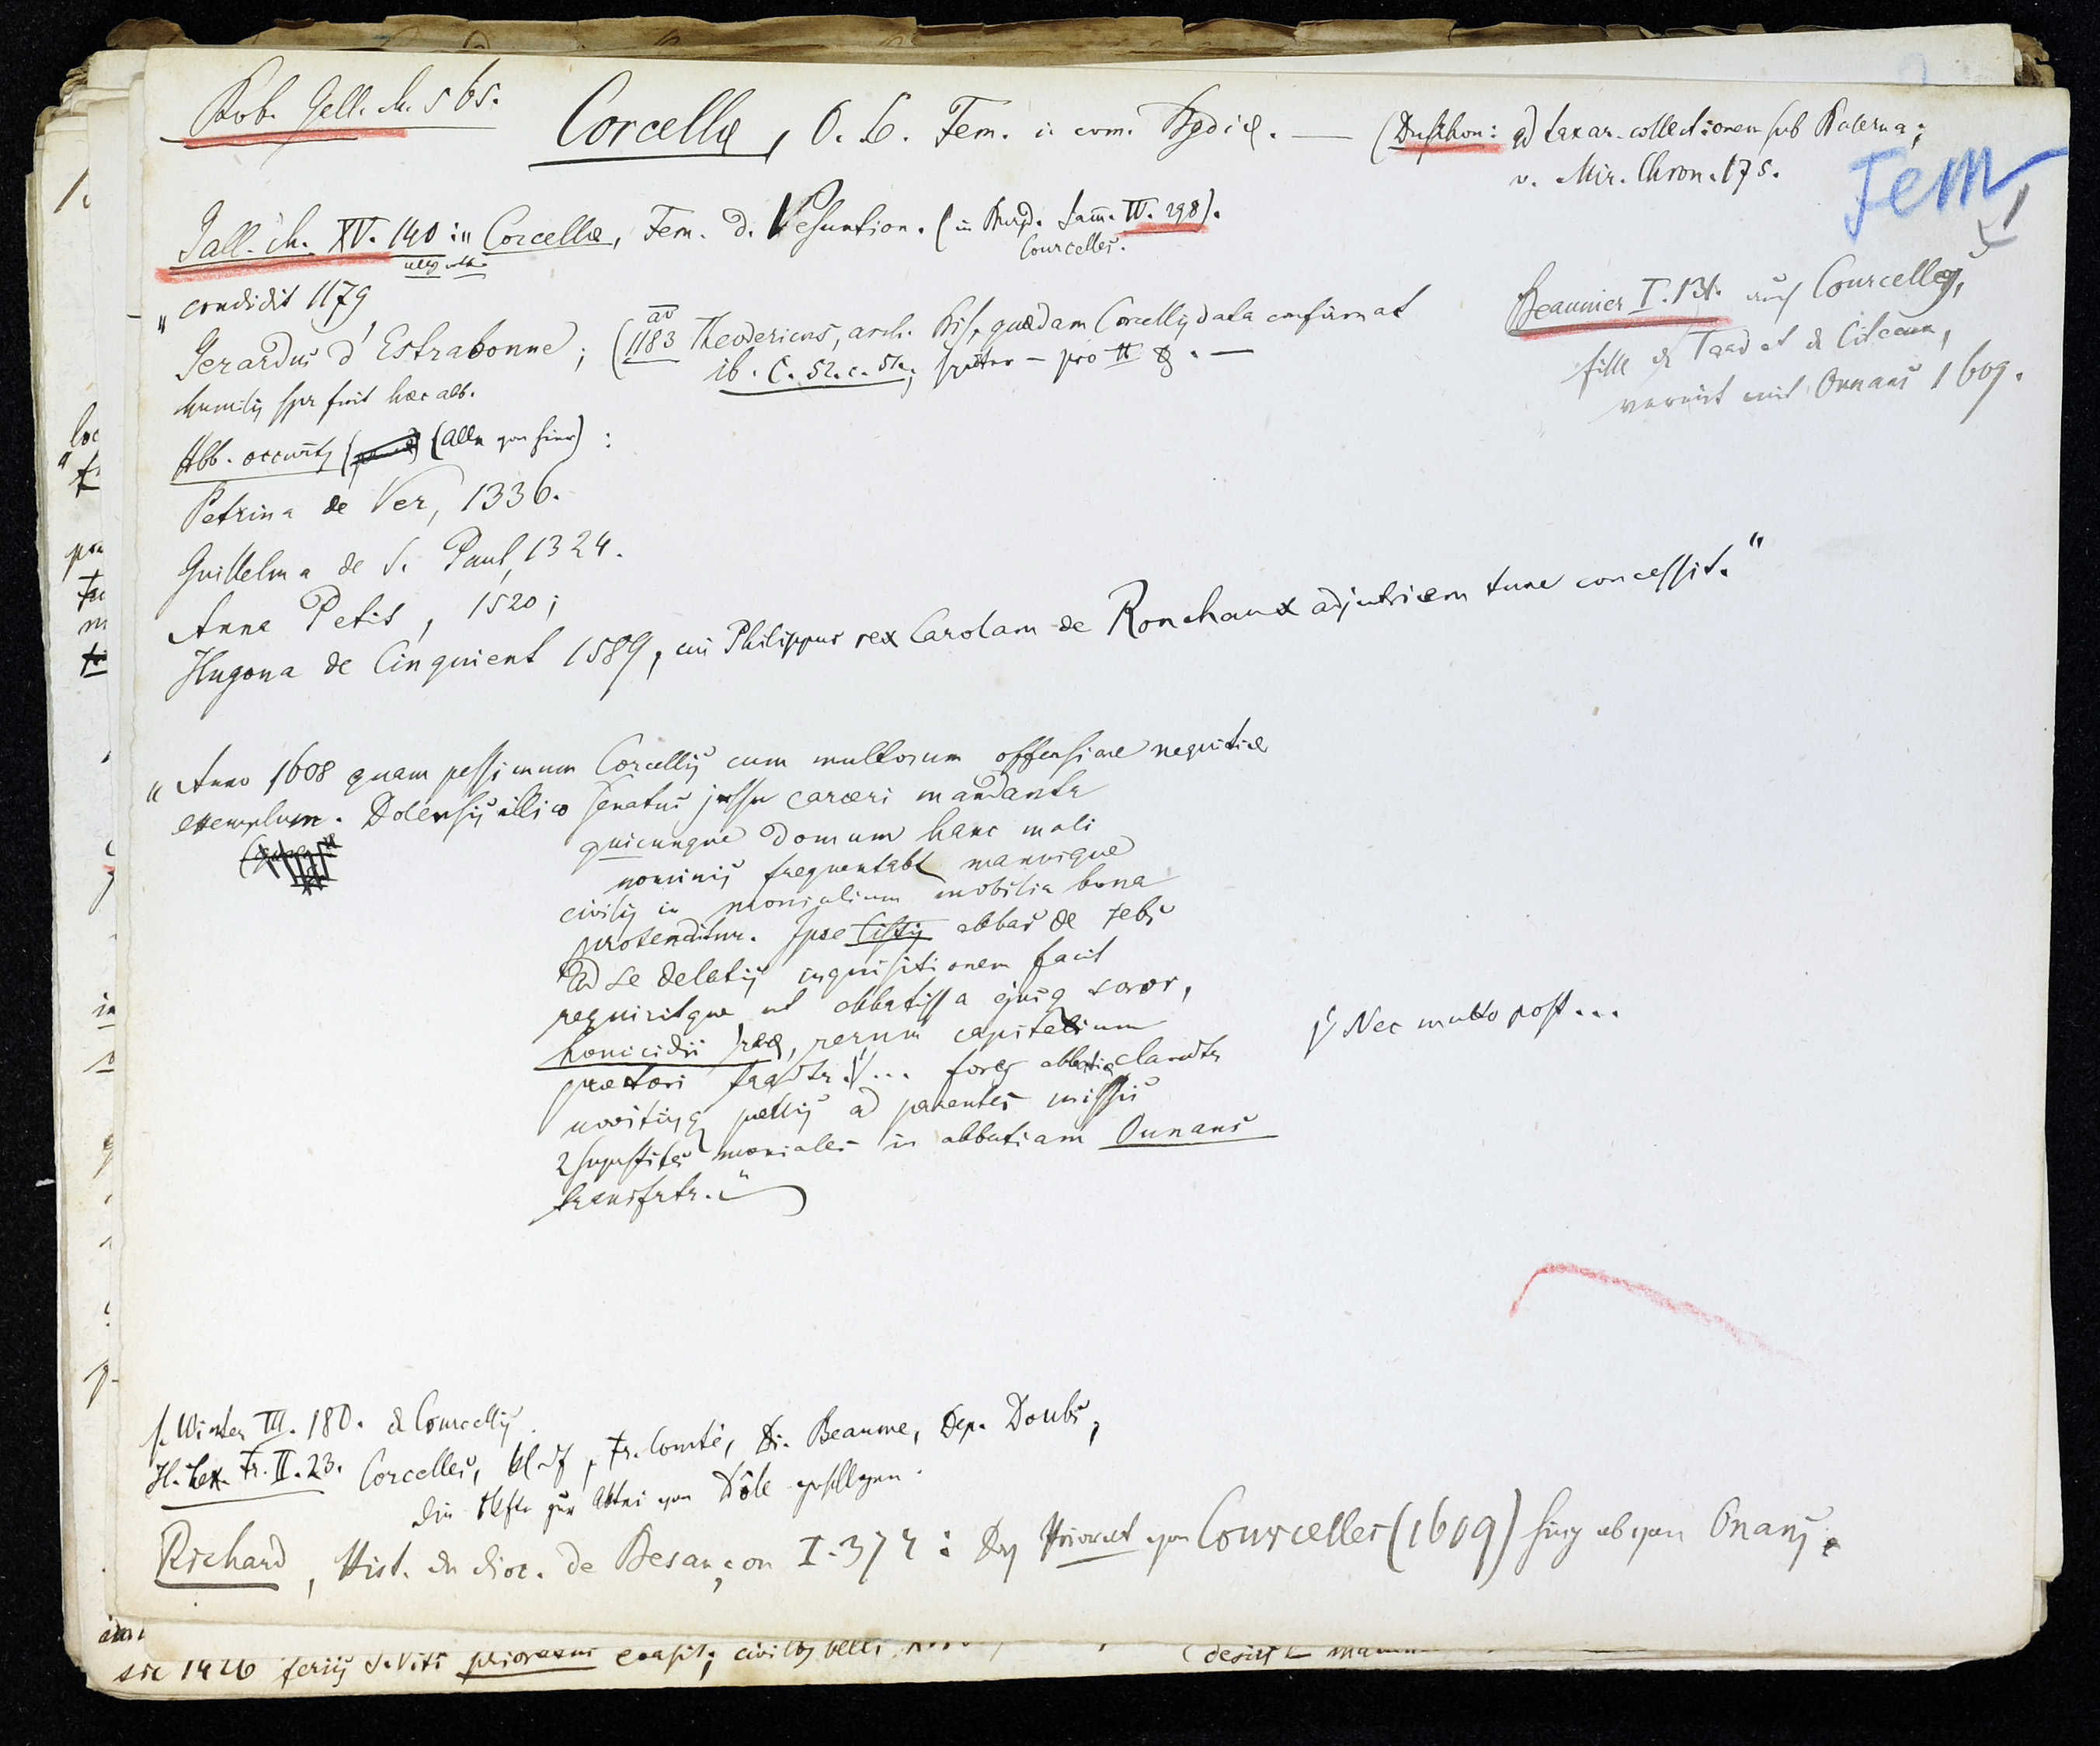 Rob. Gall. ch. 565.
Corcellæ, O. C. Fem. in com. Bgdiæ. — (Duchon: ad taxar. collectionem sub Palerna;
v. Mir. Chron. 175.
Fem
Gall. ch. XV. 140: "Corcellæ, Fem. d. Vesuntion. (in Burgd. Samm. IV. 298).
Courcelles.
"condidit 1179
Gerardus d'Estrabonne; (1183 Theodericus, arch. Bis., quædam Corcellis data confirmat
humilis spr fuit hæc abb.
ib. C. 52. c. 51.; später — pro
Beaunier I. 131. auch Courcelles,
fille de Tard et de Citeaux,
vereint mit Onnans 1609.
Abb. occurrts (alle von hier):
Petrina de Ver, 1336.
Guillelma de S. Paul, 1324.
Anna Petit, 1520;
Hugona de Cinquient 1589, cui Philippus rex Carolam de Ronchaux adjutricem tunc concessit."
"Anno 1608 quam pessimum Corcellis cum multorum offensione nequitiæ
exemplum. Dolensis illico senatus jussu carceri mandantr
quicunque domum hanc mali
nominis frequentabt manusque
civilis in monialium mobilia bona
protenditur. Ipse Cistii abbas de rebs
ad se delatis inquisitionem facit
requiritque ut abbatissa ejusq soror,
homicidii reæ, rerum capitalium
prætori tradtr. √... fores abbatiæ claudtr
novitiisq puellis ad parentes missis
2 superstites moniales in abbatiam Ounans
transfrtr."
√ Nec multo post...
s. Winter III. 180. de Courcellis.
H. Lex. Fr. II. 23. Corcelles, kl. Df, Fr. Comté, Di. Beaume, Dep. Doubs,
die Abtei von Dôle
Richard, Hist. du dioc. de Besançon I. 374: Das Priorat von Courcelles (1609) hing ab von Onans.
sic 1426 feriis S. Viti prioratus evasit; civilbs belli